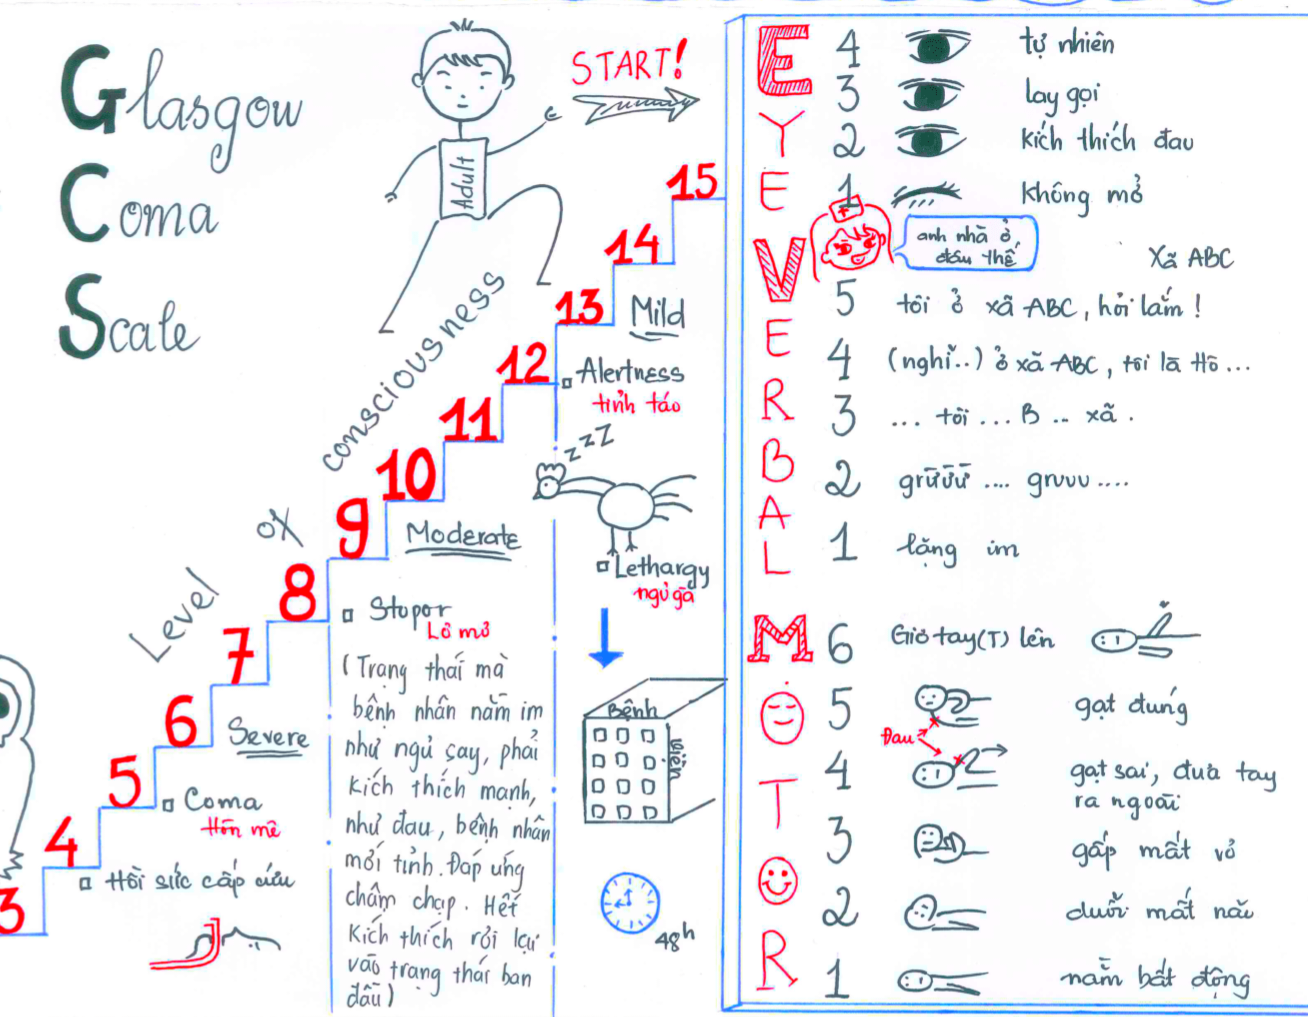 Glasgow
Coma
Scale
Adult
START!
Level of consciousness
15
14
13
12
11
10
9
8
7
6
5
4
3
Mild
Alertness
tỉnh táo
zzZZ
Lethargy
ngủ gà
Bệnh
viện
48h
Moderate
Stupor
Lơ mơ
(Trạng thái mà
bệnh nhân nằm im
như ngủ say, phải
kích thích mạnh,
như đau, bệnh nhân
mới tỉnh. Đáp ứng
chậm chạp. Hết
kích thích rồi lại
vào trạng thái ban
đầu)
Severe
Coma
Hôn mê
Hồi sức cấp cứu
EYE
4 tự nhiên
3 lay gọi
2 kích thích đau
1 không mở
VERBAL
anh nhà ở
đâu thế
Xã ABC
5 tôi ở xã ABC, hỏi lắm!
4 (nghĩ..) ở xã ABC, tôi là Hồ...
3 ... tôi ... B .. xã .
2 grừừừ .... gruuu ....
1 lặng im
MOTOR
6 Giơ tay(T) lên
5 gạt đúng
Đau
4 gạt sai, đưa tay
ra ngoài
3 gấp mất vỏ
2 duỗi mất não
1 nằm bất động